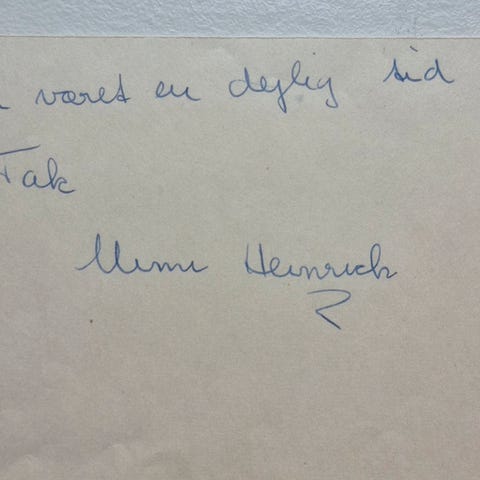 været en dejlig tid
Tak
Mimi Heinrich